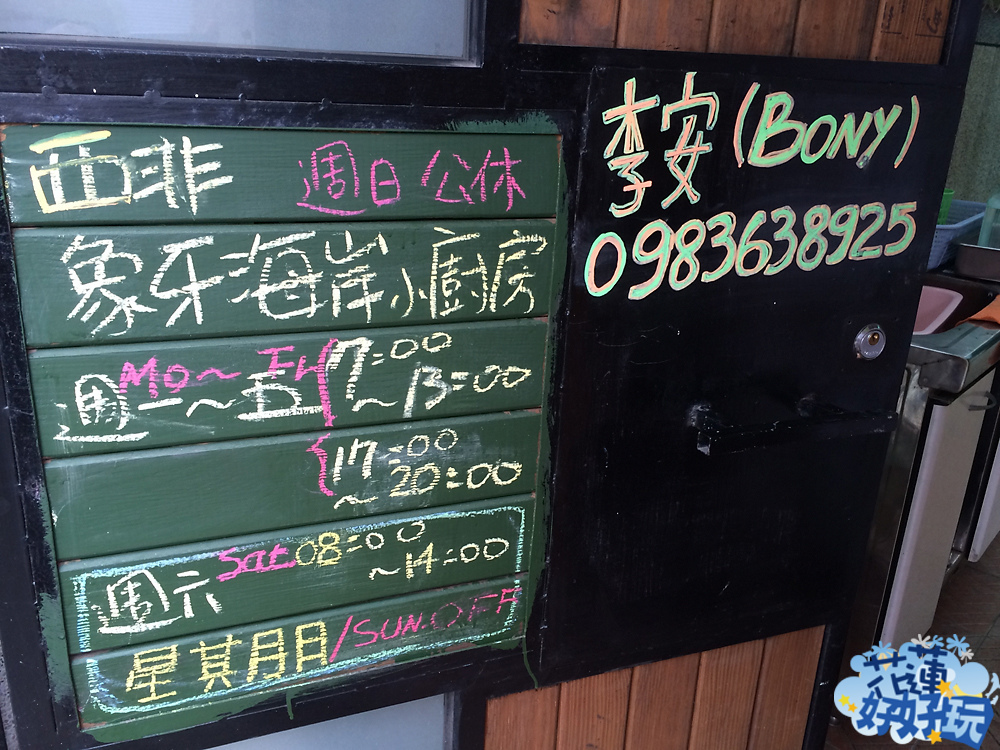 西非 週日公休
象牙海岸小廚房
Mo～Fri 7:00
週一～五 ～13:00
17:00
～20:00
週六 Sat 08:00
～14:00
星其月日/SUN.OFF
李安(BONY)
0983638925
花蓮
好好玩